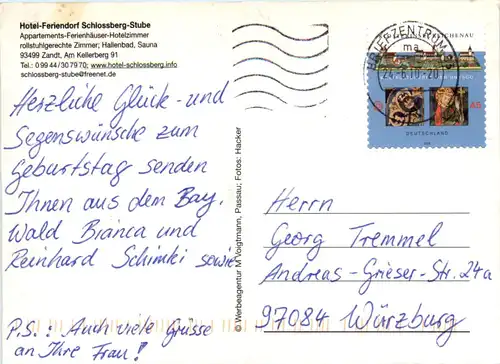 Hotel-Feriendorf Schlossberg-Stube
Appartements-Ferienhäuser-Hotelzimmer
rollstuhlgerechte Zimmer; Hallenbad, Sauna
93499 Zandt, Am Kellerberg 91
Tel.: 0 99 44/30 79 70; www.hotel-schlossberg.info
schlossberg-stube@freenet.de
Herzliche Glück- und
Segenswünsche zum
Geburtstag senden
Ihnen aus dem Bay.
Wald Bianca und
Reinhard Schimki sowie
P.S.: Auch viele Grüsse
an Ihre Frau!
© Werbeagentur M. Voigtmann, Passau; Fotos: Hacker
BRIEFZENTRUM
ma
DEUTSCHLAND
Herrn
Georg Tremmel
Andreas-Grieser-Str. 24a
97084 Würzburg